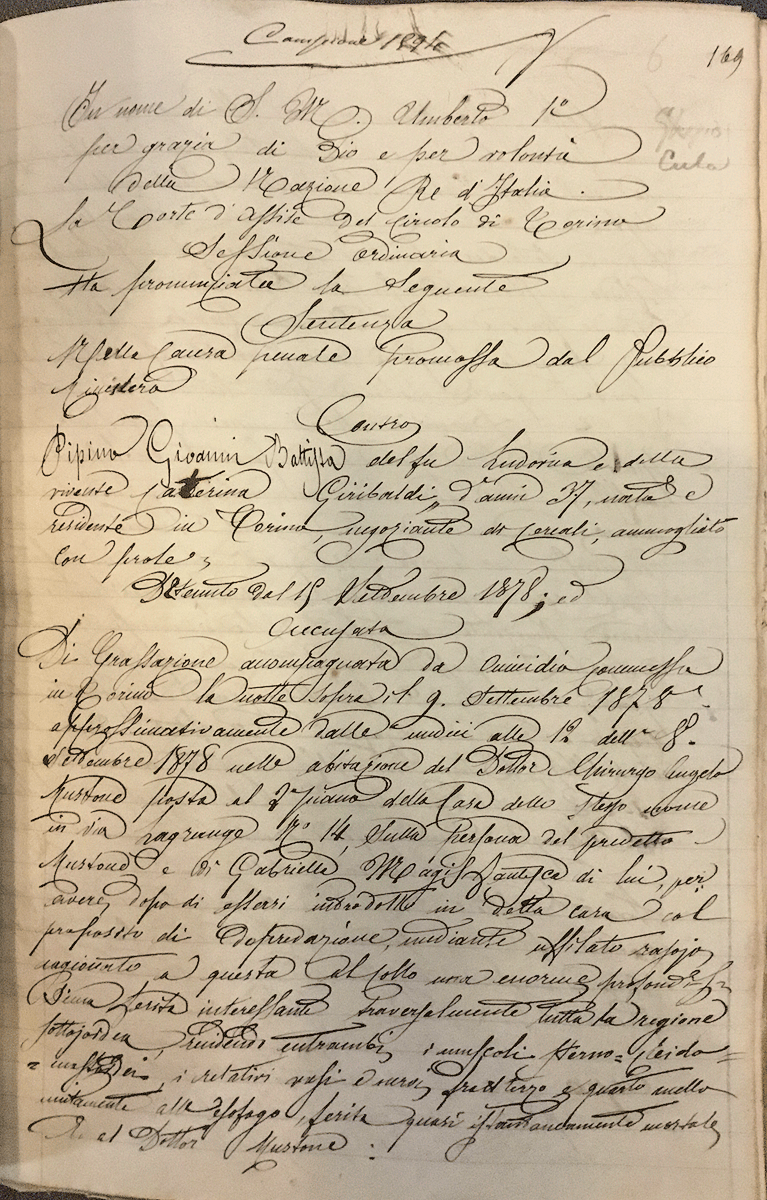 Campione 1894
169
In nome di S. M. Umberto 1º
per grazia di Dio e per volontà
della Nazione Re d'Italia.
La Corte d'Assise del Circolo di Torino
Sessione ordinaria
Ha pronunziata la seguente
Sentenza
Nella Causa penale promossa dal Pubblico
Ministero
Contro
Pipino Giovanni Battista del fu Lodovico e della
vivente Catterina Giribaldi, d'anni 37, nato e
residente in Torino, negoziante di Cereali, ammogliato
con prole;
Detenuto dal 15 Settembre 1878; ed
Accusato
Di Grassazione accompagnata da omicidio commessa
in Torino la notte sopra il 9. Settembre 1878
approssimativamente dalle undici alle 12 dell' 8.
Settembre 1878 nella abitazione del Dottor Chirurgo Angelo
Mustone posta al 2º piano della Casa dello stesso nome
in via Lagrange Nº 14 sulla persona del predetto
Mustone e di Gabriella Magis fantesca di lui, per
avere, dopo di essersi introdotto in detta casa col
proposito di depredazione, mediante affilato rasojo
cagionato a questa al collo una enorme profondissima
ferita interessante traversalmente tutta la regione
sottojoidea, recidendo entrambi i muscoli sterno-cleido-
mastoidei, i relativi vasi e nervi, fra il terzo e quarto anello
unitamente all'esofago, ferita quasi istantaneamente mortale,
e al Dottor Mustone: